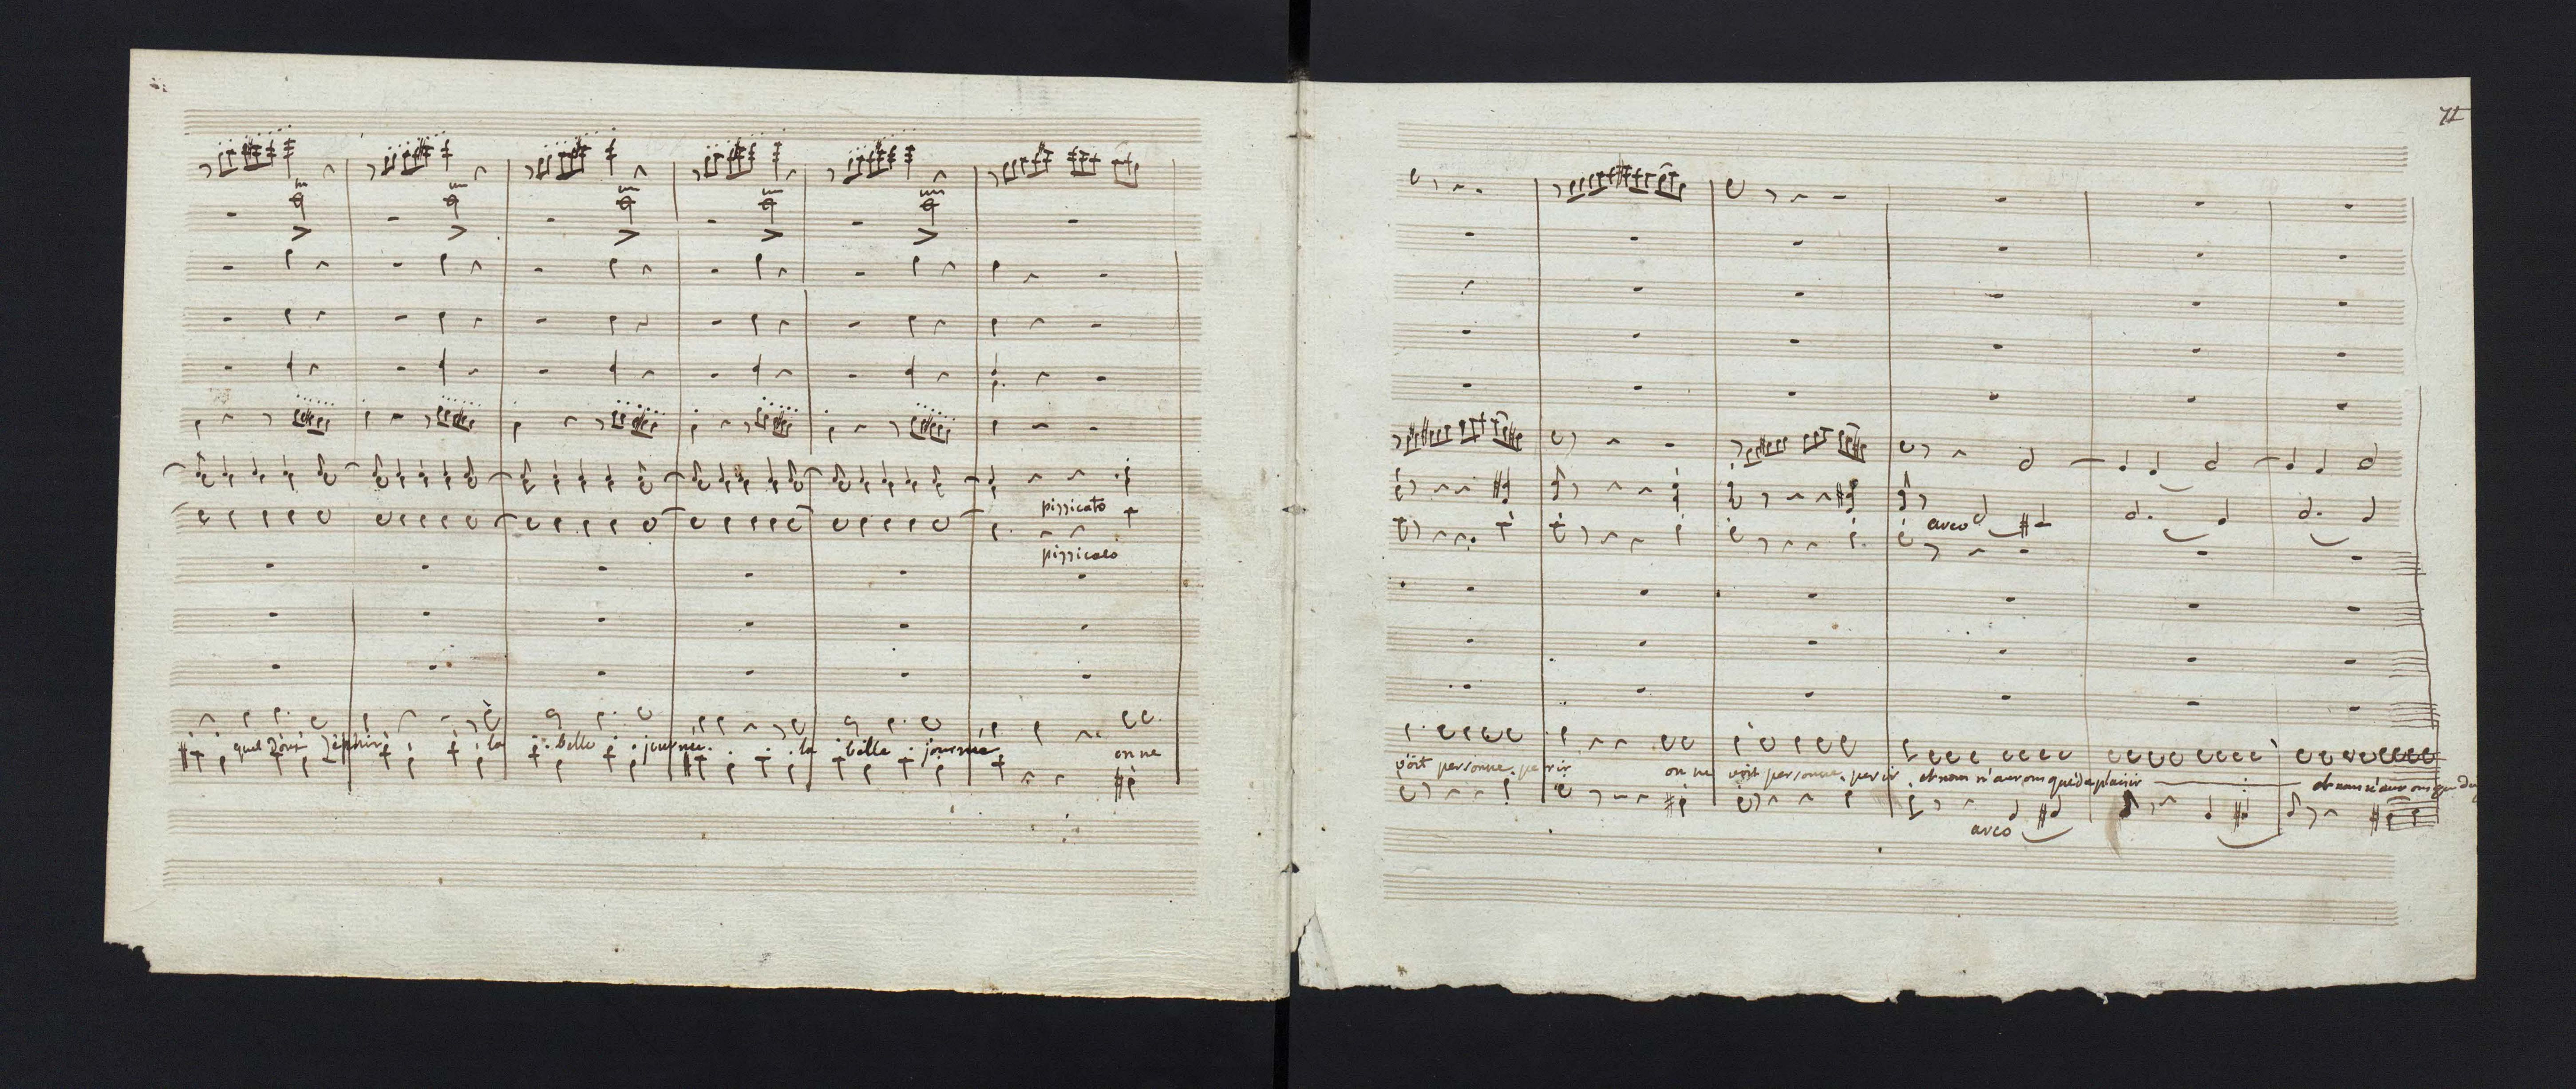 pizzicato
pizzicato
quel doux zéphir la belle journée. la belle journée on ne
11
arco
voit personne. perir on ne voit personne. perir. et nous n'aurons que de plaisir et nous n'aurons que
arco